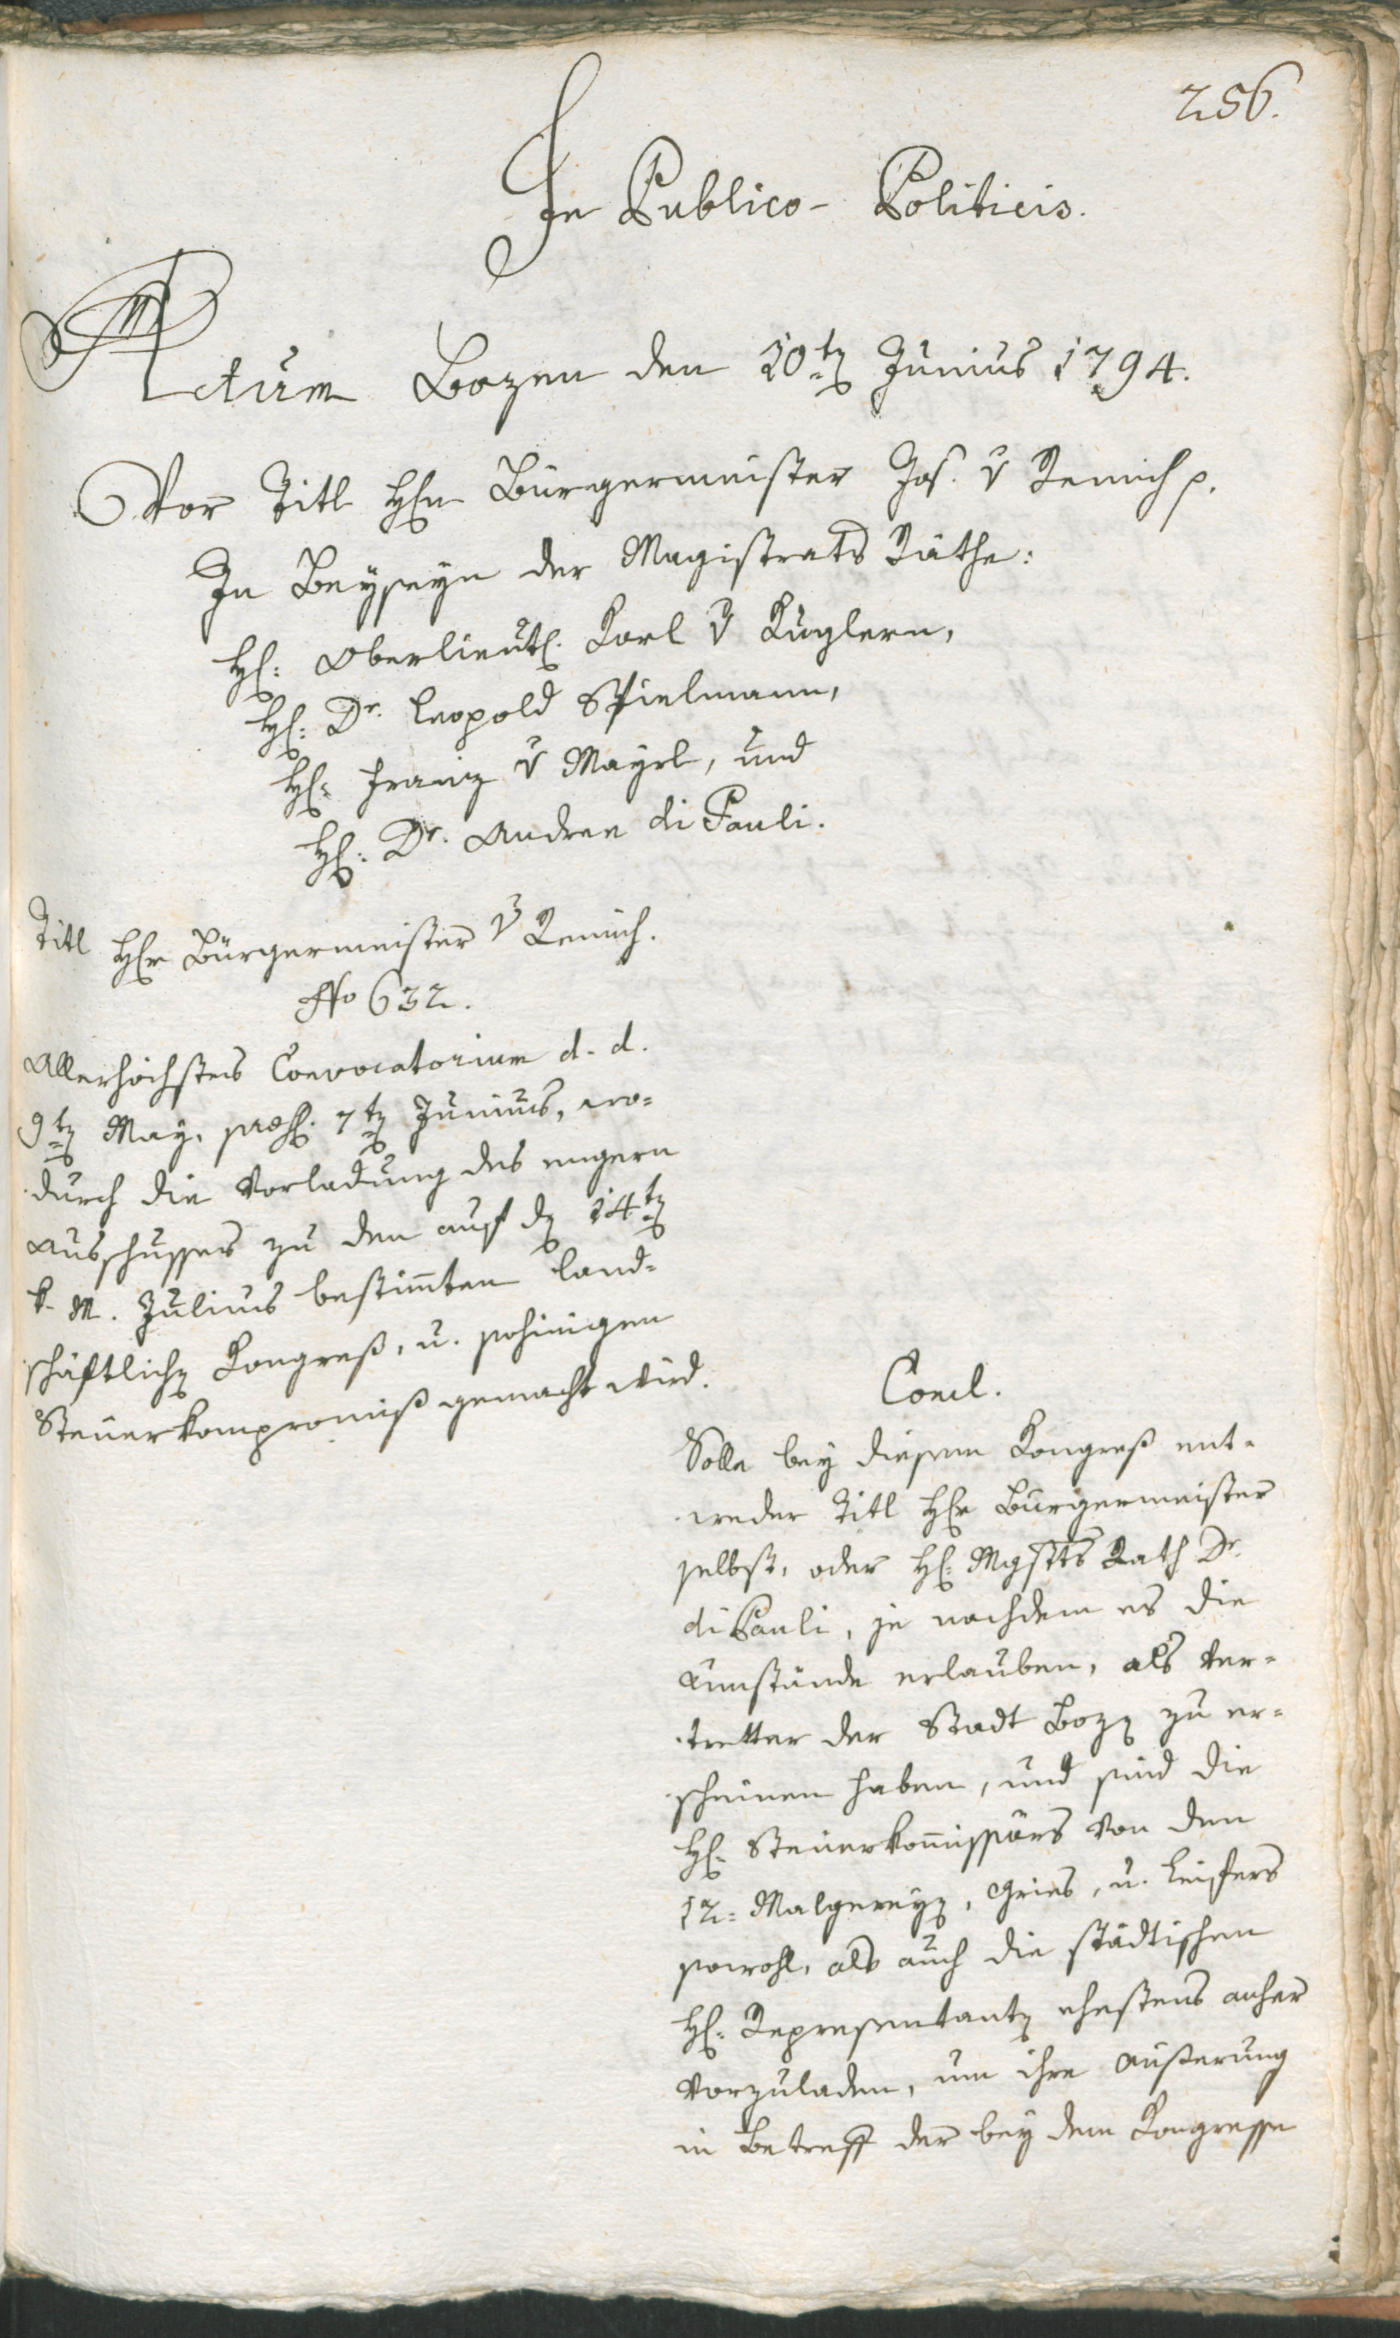 256.
In Publico- Politicis.
Actum Bozen den 10ten Junius 1794.
Vor Titl Hhn Bürgermeister Jos. v Remich p.
In Beyseyn der Magistrats Räthe:
Hh: Oberlieut. Karl v Kuglern,
Hh: Dr. Leopold Spielmann,
Hh: Franz v Mayrl, und
Hh: Dr. Andree di Pauli.
Titl Hhr Bürgermeister v Remich.
No 632.
Allerhöchstes Convocatorium d. d.
9ten May, præs. 7ten Junius, wo=
durch die Vorladung des engern
Ausschusses zu dem auf den 14ten
k. M. Julius bestimten land=
schäftlichen Kongreß, u. sohinigen
Steuerkompromiß gemacht wird.
Concl.
Solle bey diesem Kongreß ent=
weder Titl Hhr Bürgermeister
selbst, oder Hh: Mgstts Rath Dr.
di Pauli, je nachdem es die
Umstände erlauben, als Ver=
tretter der Stadt Bozen zu er=
scheinen haben, und sind die
Hh: Steuerkommissärs von den
12= Malgereyen, Gries, u. Leifers
sowohl, als auch die städtischen
Hh: Representanten ehestens anher
vorzuladen, um ihre Äußerung
in Betreff der bey dem Kongresse